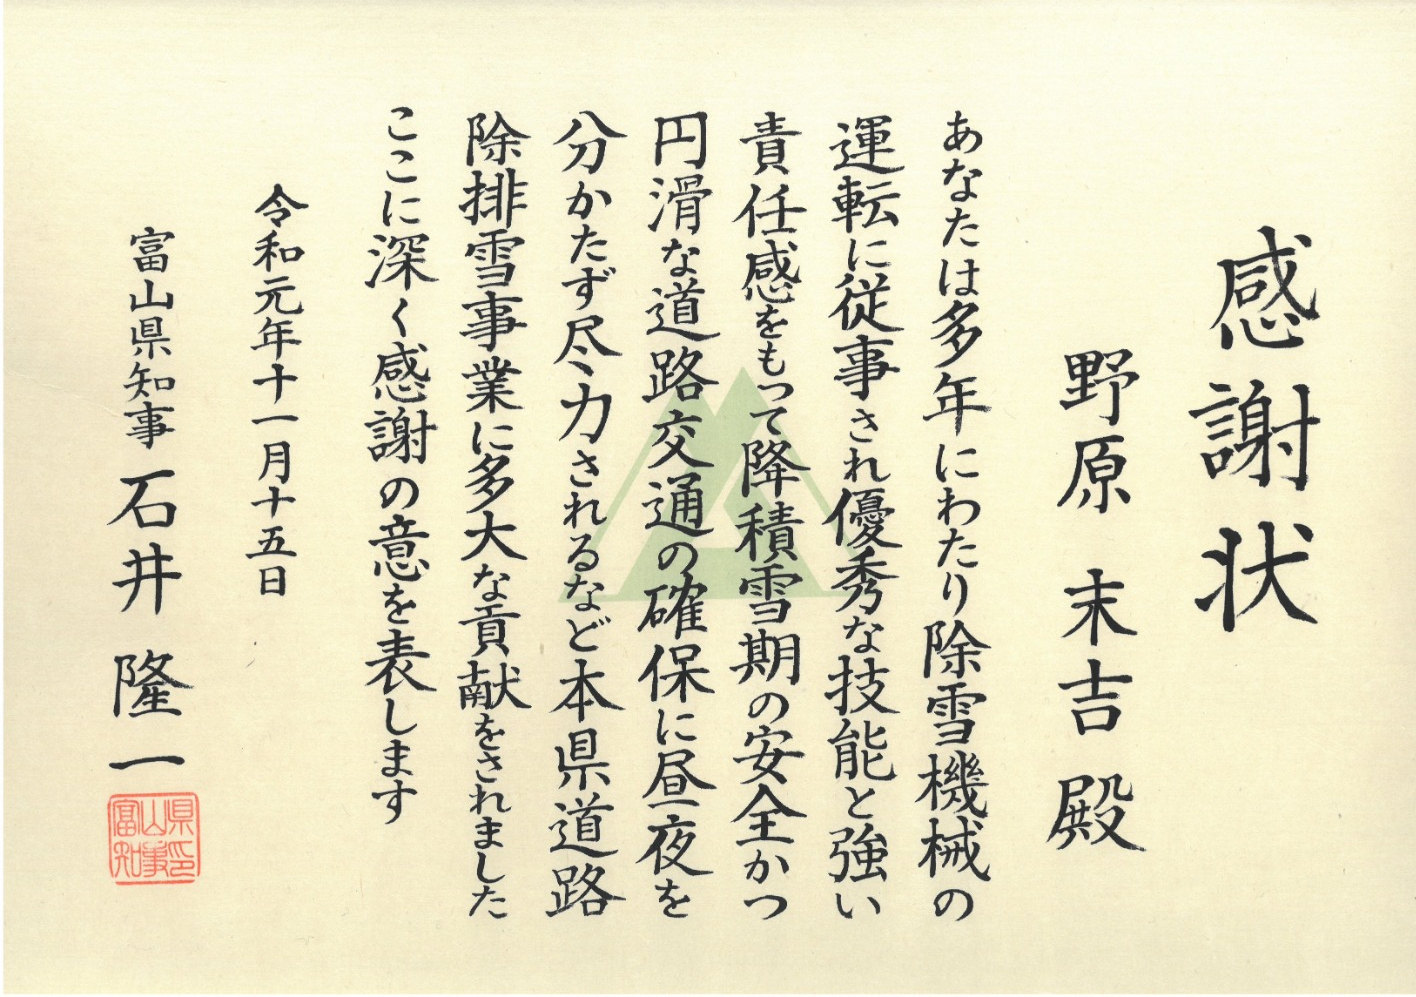 感謝状
野原 末吉 殿
あなたは多年にわたり除雪機械の
運転に従事され優秀な技能と強い
責任感をもって降積雪期の安全かつ
円滑な道路交通の確保に昼夜を
分かたず尽力されるなど本県道路
除排雪事業に多大な貢献をされました
ここに深く感謝の意を表します
令和元年十一月十五日
富山県知事 石井 隆一
県印
山事
富知